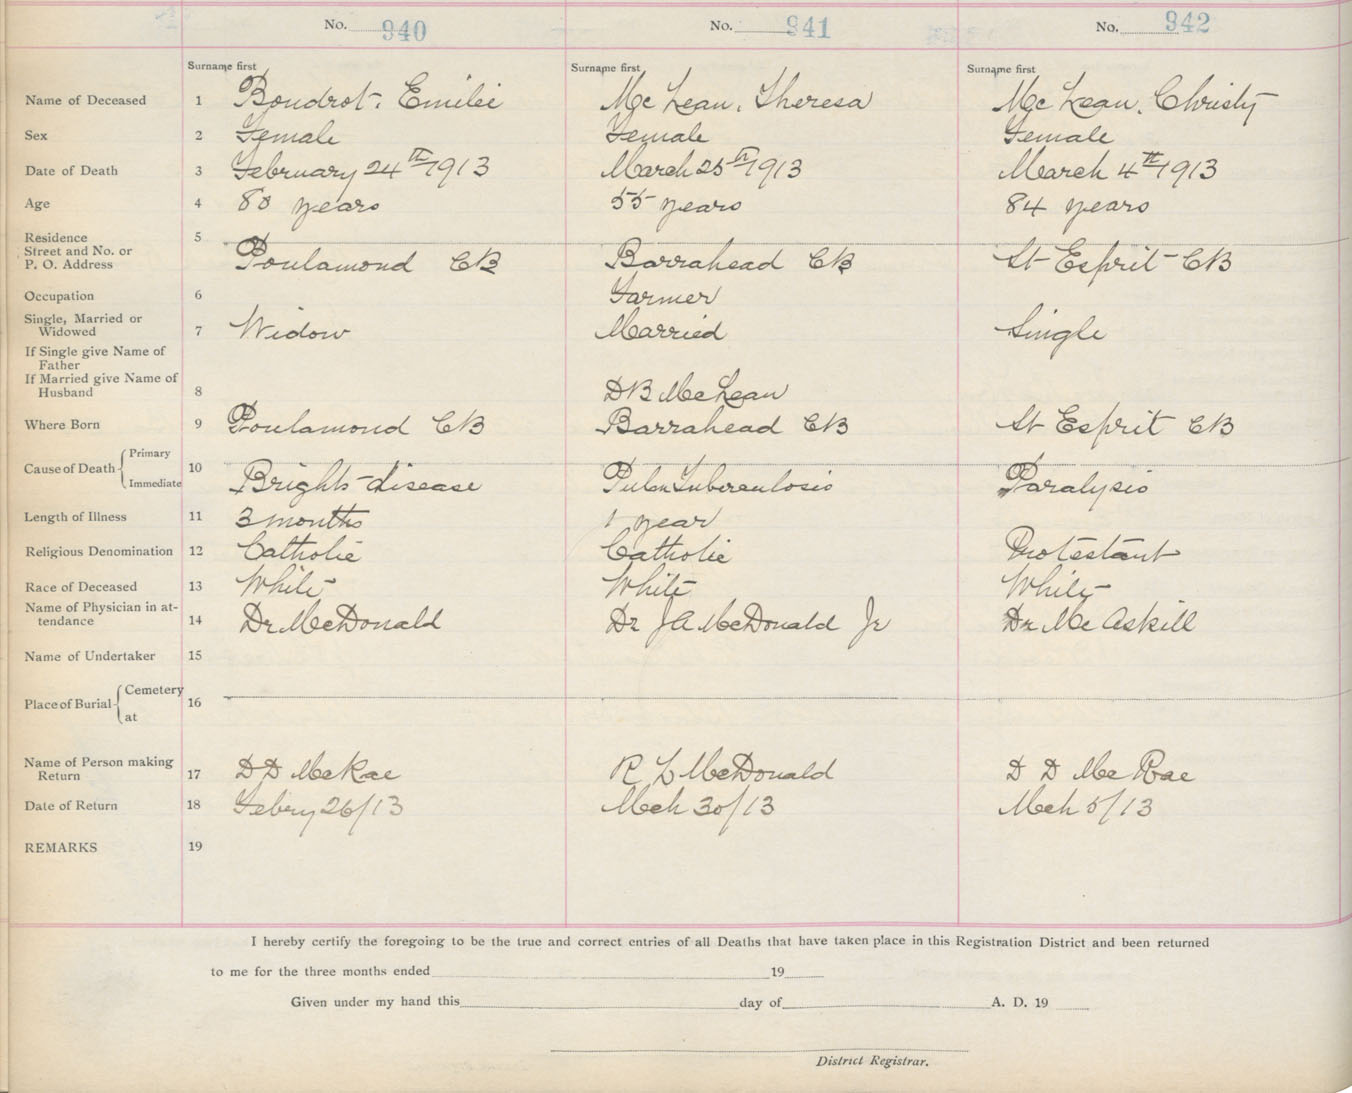 No. 940 No. 941 No. 942
Surname first Surname first Surname first
Name of Deceased 1 Boudrot, Emilie Mc Lean, Theresa Mc Lean, Christy
Sex 2 Female Female Female
Date of Death 3 February 24th 1913 March 25th 1913 March 4th 1913
Age 4 80 years 55 years 84 years
Residence 5
Street and No. or
P. O. Address Poulamond CB Barrahead CB St Esprit CB
Occupation 6 Farmer
Single, Married or
Widowed 7 Widow Married Single
If Single give Name of
Father
If Married give Name of
Husband 8 DB McLean
Where Born 9 Poulamond CB Barrahead CB St Esprit CB
Cause of Death Primary
10
Immediate Brights disease Pulm Tuberculosis Paralysis
Length of Illness 11 3 months 1 year
Religious Denomination 12 Catholic Catholic Protestant
Race of Deceased 13 White White White
Name of Physician in at-
tendance 14 Dr McDonald Dr JA McDonald Jr Dr Mc Askill
Name of Undertaker 15
Place of Burial Cemetery
16
at
Name of Person making
Return 17 D D McRae R L McDonald D D Mc Rae
Date of Return 18 Febry 26/13 Mch 30/13 Mch 5/13
REMARKS 19
I hereby certify the foregoing to be the true and correct entries of all Deaths that have taken place in this Registration District and been returned
to me for the three months ended 19
Given under my hand this day of A. D. 19
District Registrar.